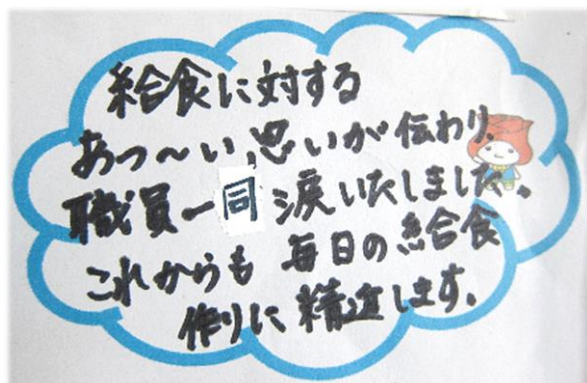 給食に対する
あつ～い、思いが伝わり、
職員一同 涙いたしました、
これからも 毎日の給食
作りに精進します。